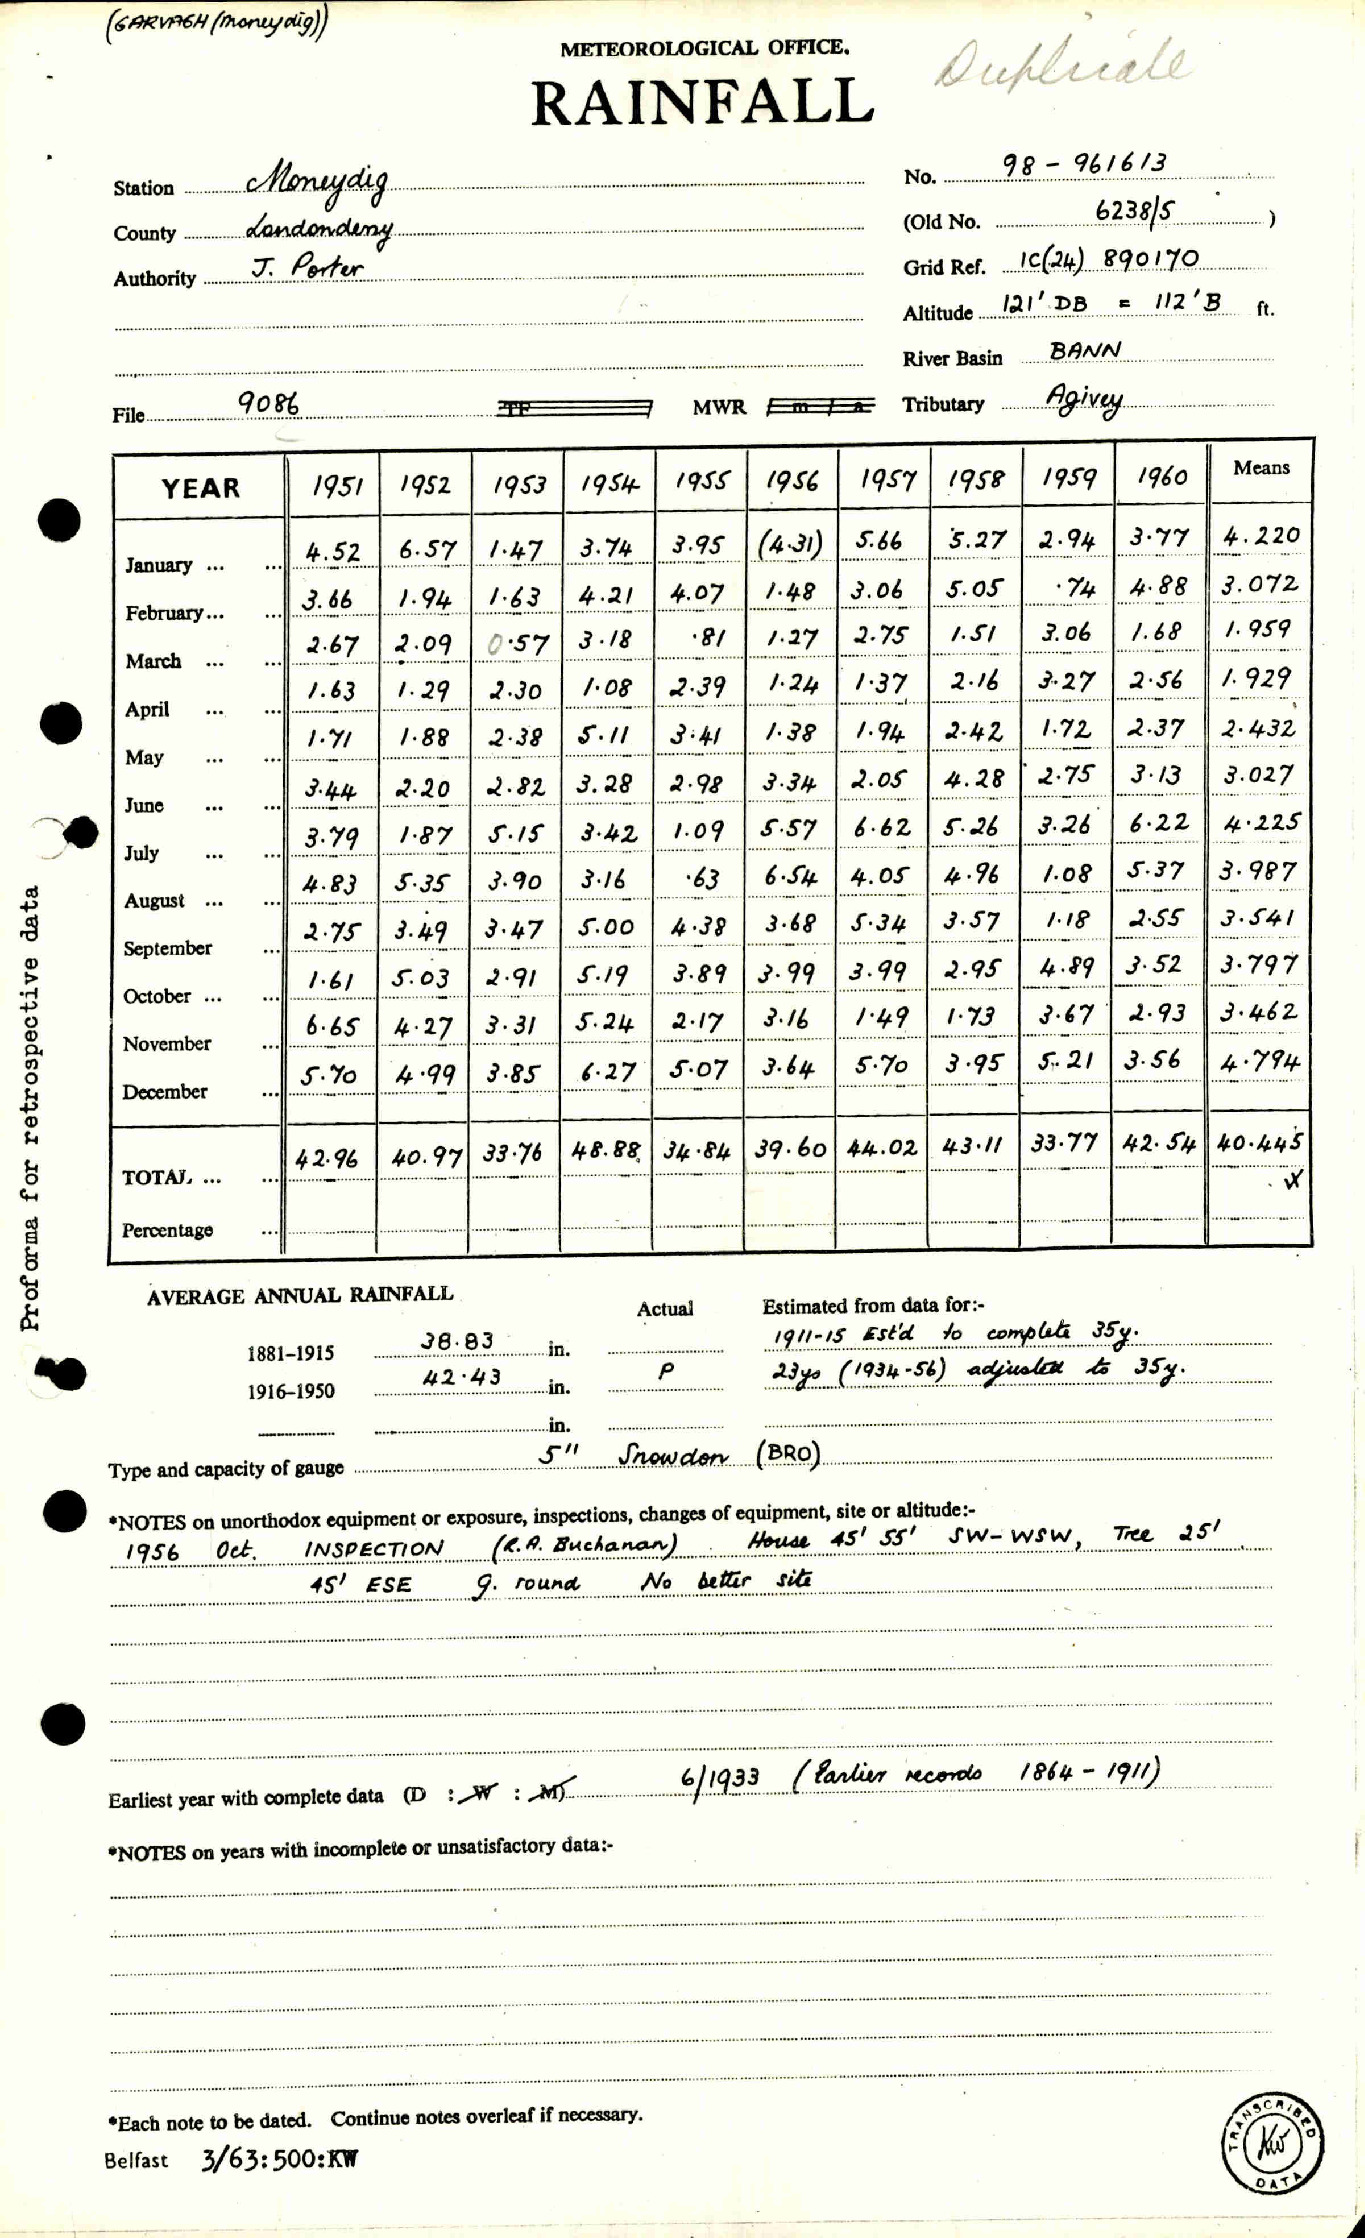 (GARVAGH (Moneydig))
METEOROLOGICAL OFFICE.
Duplicate
RAINFALL
Station Moneydig No. 98 - 961613
County Londonderry (Old No. 6238/5 )
Authority J. Porter Grid Ref. IC(24) 890170
Altitude 121' DB = 112' B ft.
River Basin BANN
File 9086 TF MWR m a Tributary Agivey
YEAR 1951 1952 1953 1954 1955 1956 1957 1958 1959 1960 Means
January ... ... 4.52 6.57 1.47 3.74 3.95 (4.31) 5.66 5.27 2.94 3.77 4.220
February ... ... 3.66 1.94 1.63 4.21 4.07 1.48 3.06 5.05 .74 4.88 3.072
March ... ... 2.67 2.09 0.57 3.18 .81 1.27 2.75 1.51 3.06 1.68 1.959
April ... ... 1.63 1.29 2.30 1.08 2.39 1.24 1.37 2.16 3.27 2.56 1.929
May ... ... 1.71 1.88 2.38 5.11 3.41 1.38 1.94 2.42 1.72 2.37 2.432
June ... ... 3.44 2.20 2.82 3.28 2.98 3.34 2.05 4.28 2.75 3.13 3.027
July ... ... 3.79 1.87 5.15 3.42 1.09 5.57 6.62 5.26 3.26 6.22 4.225
August ... ... 4.83 5.35 3.90 3.16 .63 6.54 4.05 4.96 1.08 5.37 3.987
September ... 2.75 3.49 3.47 5.00 4.38 3.68 5.34 3.57 1.18 2.55 3.541
October ... ... 1.61 5.03 2.91 5.19 3.89 3.99 3.99 2.95 4.89 3.52 3.797
November ... 6.65 4.27 3.31 5.24 2.17 3.16 1.49 1.73 3.67 2.93 3.462
December ... 5.70 4.99 3.85 6.27 5.07 3.64 5.70 3.95 5.21 3.56 4.794
TOTAL ... ... 42.96 40.97 33.76 48.88 34.84 39.60 44.02 43.11 33.77 42.54 40.445
Percentage ...
Proforma for retrospective data
AVERAGE ANNUAL RAINFALL Actual Estimated from data for:-
1881–1915 38.83 in. 1911-15 Est'd to complete 35y.
1916–1950 42.43 in. P 23ys (1934-56) adjusted to 35y.
in.
Type and capacity of gauge 5" Snowdon (BRO)
*NOTES on unorthodox equipment or exposure, inspections, changes of equipment, site or altitude:-
1956 Oct. INSPECTION (R.A. Buchanan). House 45' 55' SW-WSW, Tree 25'
45' ESE g. round No better site
Earliest year with complete data (D : W : M) 6/1933 (Earlier records 1864 - 1911)
*NOTES on years with incomplete or unsatisfactory data:-
*Each note to be dated. Continue notes overleaf if necessary.
Belfast 3/63:500:KW
TRANSCRIBED
KW
DATA